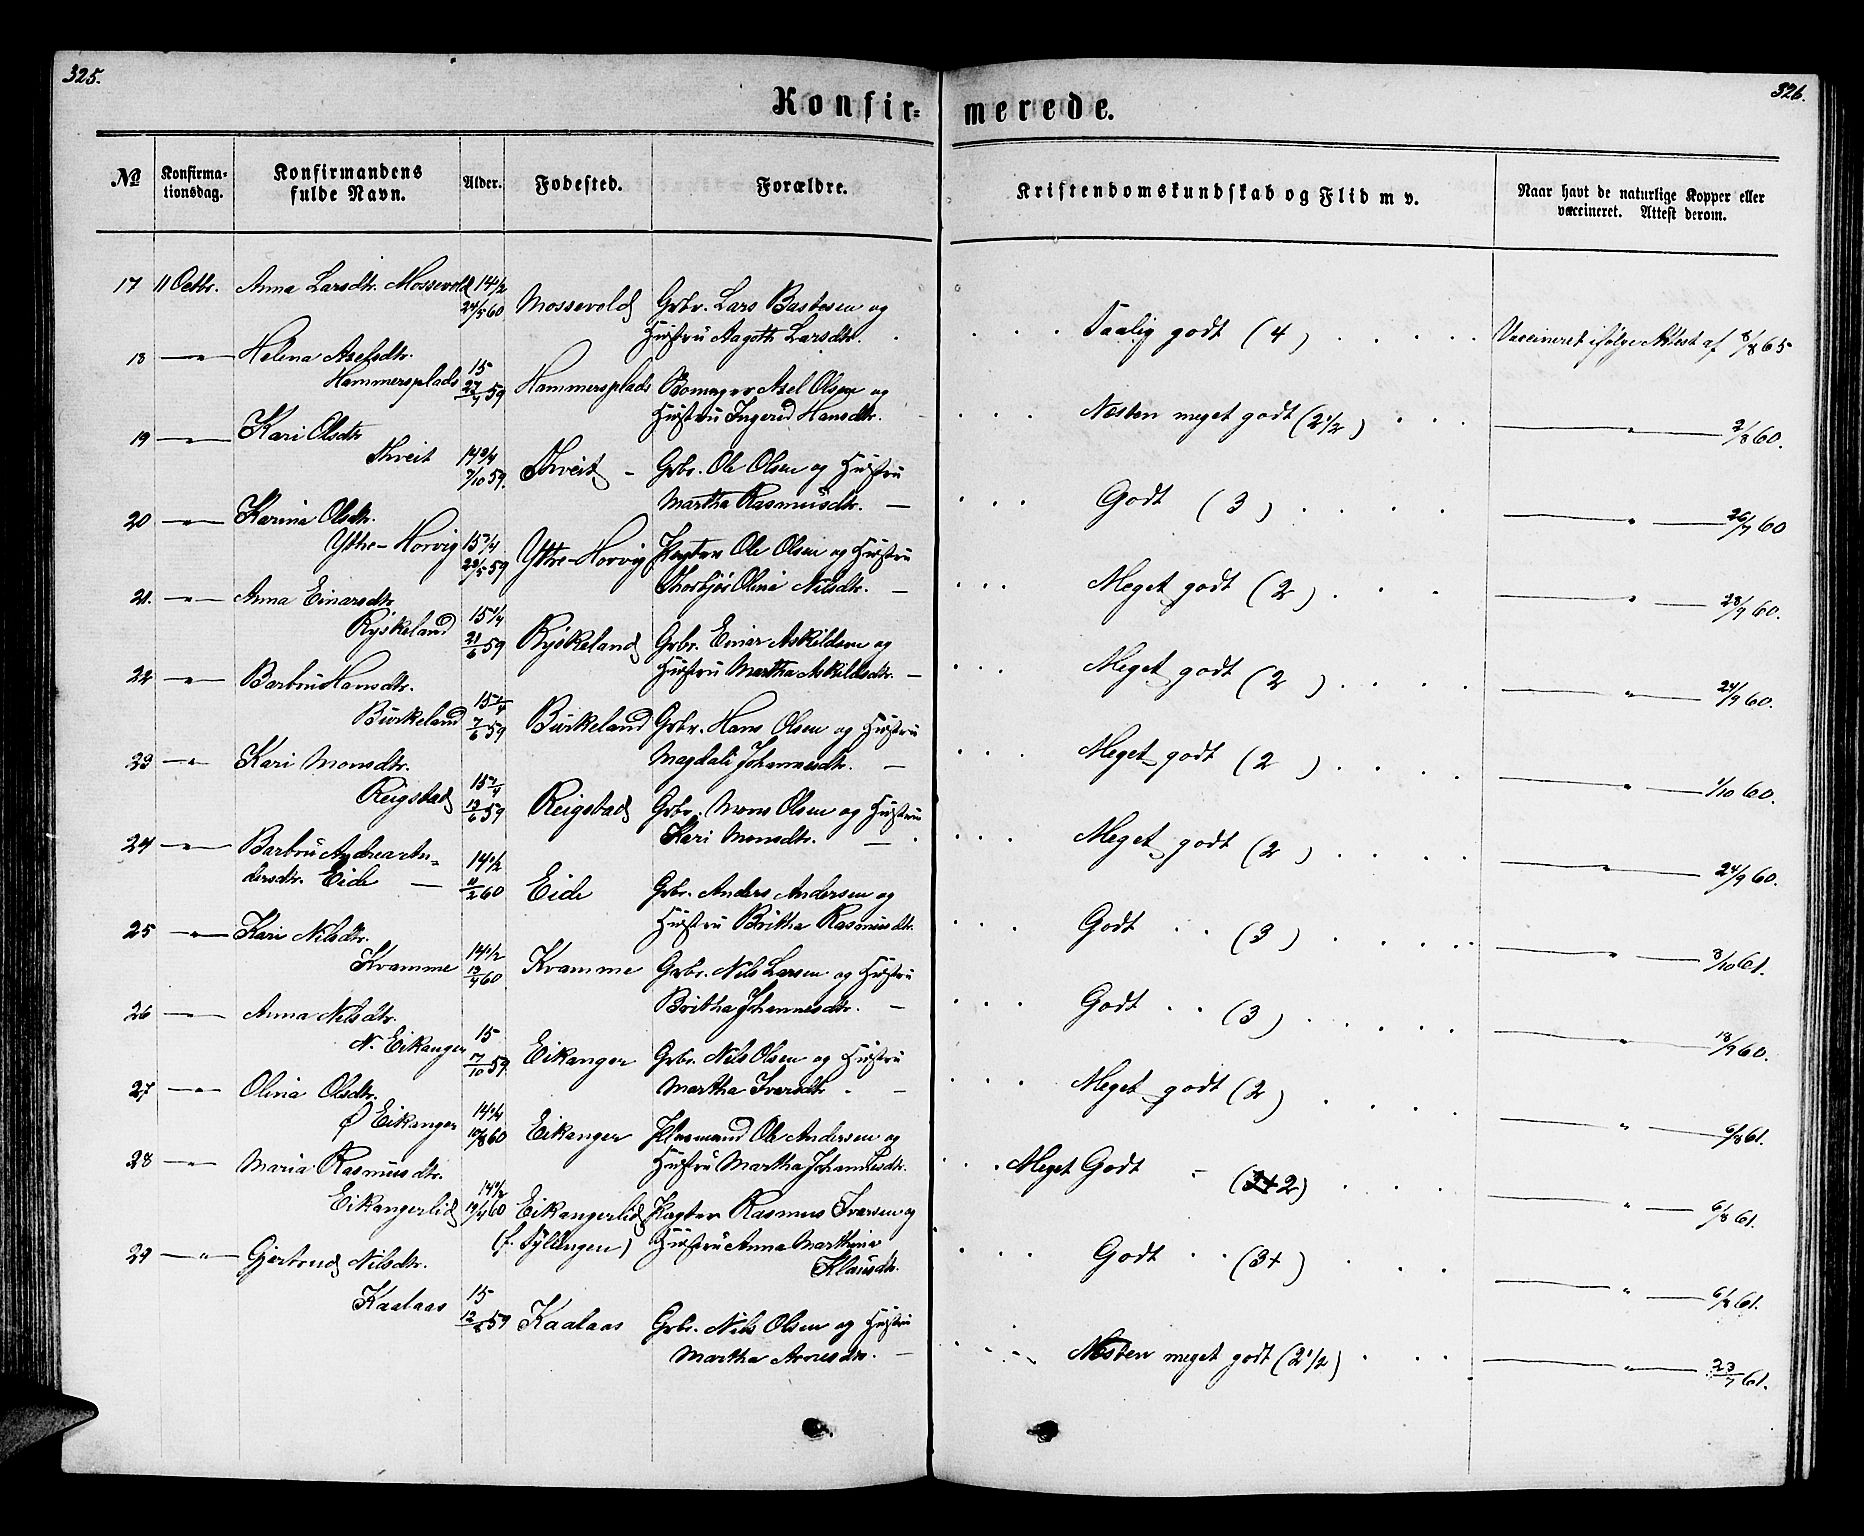 325.
326.
Konfir= merede.
№ Konfirma=tionsdag. Konfirmandens fulde Navn. Alder. Fødested. Forældre. Kristendomskundskab og Flid m v. Naar havt de naturlige Kopper eller vaccineret. Attest derom.
17 11 Octbr. Anna Larsdtr. Mossevold 14 1/2
24/5 60 Mossevold Grbr. Lars Bastesen og
Hustru Aagoth Larsdtr. . . . Taalig godt (4) . . . . . Vaccineret ifølge Attest af 8/8 65
18 —"— Helena Axelsdtr.
Hammersplads 15 27/7 59 Hammersplads Bomager Axel Olsen og
Hustru Ingerid Hansdtr. . . . Næsten meget godt (2 1/2) . . . —"— 2/8 60.
19 —"— Kari Olsdtr.
Thveit 14 3/4 7/10 59. Thveit — Grbr. Ole Olsen og Hustru
Martha Rasmusdtr. — . . . Godt (3) . . . . —"— 26/7 60
20 —"— Karina Olsdtr.
Ytre-Horvig 15 1/4 22/5 59 Ytre-Horvig Pagter Ole Olsen og Hustru
Thorbjør Olina Nilsdtr. — . . . Meget godt (2) . . . —"— 28/9 60.
21. —"— Anna Einarsdtr.
Ryskeland 15 1/4 21/6 59 Ryskeland Grbr. Einar Askildsen og
Hustru Martha Askildsdtr. — . . . Meget godt (2) . . . . —"— 24/9 60.
22 —"— Barbru Hansdtr.
Birkeland 15 1/4 7/6 59 Birkeland Grbr. Hans Olsen og Hustru
Magdali Johannesdtr. — . . . Meget godt (2) . . . . —"— 1/10 60.
23 —"— Kari Monsdtr.
Reigstad 15 1/4 13/6 59 Reigstad Grbr. Mons Olsen og Hustru
Kari Monsdtr. — . . . Meget godt (2) . . . . —"— 24/9 60.
24 —"— Barbru Andrea An=
dersdtr. Eide — 14 1/2 11/2 60 Eide Grbr. Anders Andersen og
Hustru Britha Rasmusdtr. . . . Godt . . (3) . . . . . —"— 3/10 61.
25 —"— Kari Nilsdtr.
Kvamme 14 1/2 13/4 60 Kvamme Grbr. Nils Larsen og Hustru
Britha Johannesdtr. — . . . Godt . . (3) . . . . . —"— 18/9 60.
26 —"— Anna Nilsdtr.
N. Eikanger 15 7/10 59. Eikanger Grbr. Nils Olsen og Hustru
Martha Ivarsdtr. — . . . Meget godt (2) . . . . —"— 6/8 61.
27 —"— Olina Olsdtr.
Ø Eikanger 14 1/4 10/8 60 Eikanger Pladsmand Ole Andersen og
Hustru Martha Johannesdtr. . . . Meget Godt - (3+ 2) . . . . —"— 6/8 61.
28 —"— Maria Rasmusdtr.
Eikangerlid 14 1/2 19/4 60 Eikangerlid Pagter Rasmus Ivarsen og
(f. Syltingen) Hustru Anna Marthina
Klausdtr. . . . Godt . . (3+) . . . —"— 6/8 61.
29 —"— Gjertrud Nilsdtr.
Kaalaas 15 12/8 59 Kaalaas Grbr. Nils Olsen og Hustru
Martha Arnesdtr. — . . . Næsten meget godt (2 1/2) . . . —"— 23/7 61.